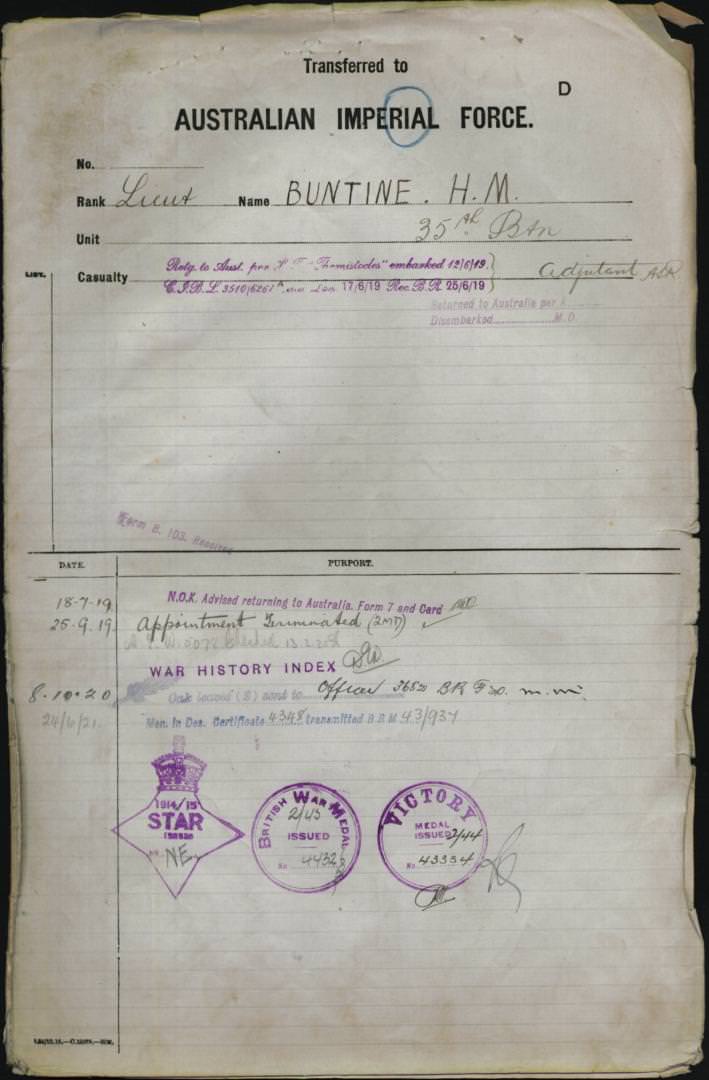 Transferred to
D
AUSTRALIAN IMPERIAL FORCE.
No.
Rank Lieut Name BUNTINE. H.M.
Unit 35th Btn
LIST.
Casualty Retg. to Aust. per H.T. "Themistocles" embarked 12/6/19. Adjutant
17/6/19 Rec. B.R. 25/6/19
Returned to Australia per
Disembarked M.D.
Form B. 103. Received
DATE. PURPORT.
18-7-19 N.O.K. Advised returning to Australia. Form 7 and Card
25-9-19 Appointment Terminated (2MD)
WAR HISTORY INDEX
8-10-20 Oak leaves (S) sent to Officer
24/6/21 Men. in Des. Certificate 4348 transmitted B.R.M. 43/937
1914/15
STAR
ISSUED
No NE.
BRITISH WAR MEDAL
2/43
ISSUED
No
VICTORY
MEDAL
ISSUED 2/44
No. 43334